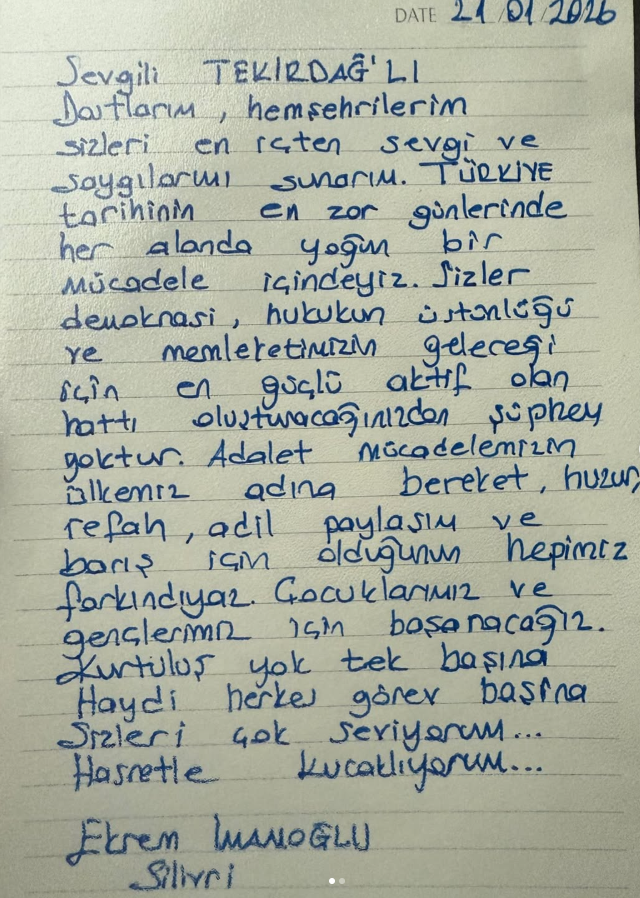 DATE 21/01/2026
Sevgili TEKİRDAĞ'LI
Dostlarım, hemşehrilerim
sizleri en içten sevgi ve
saygılarımı sunarım. TÜRKİYE
tarihinin en zor günlerinde
her alanda yoğun bir
mücadele içindeyiz. Sizler
demokrasi, hukukun üstünlüğü
ve memleketimizin geleceği
için en güçlü aktif olan
hattı oluşturacağınızdan şüphey
yoktur. Adalet mücadelemizin
ülkemiz adına bereket, huzur,
refah, adil paylaşım ve
barış için olduğunun hepimiz
farkındıyaz. Çocuklarımız ve
gençlerimiz için başaracağız.
Kurtuluş yok tek başına
Haydi herkes görev başına
Sizleri çok seviyorum...
Hasretle kucaklıyorum...
Ekrem İMAMOĞLU
Silivri